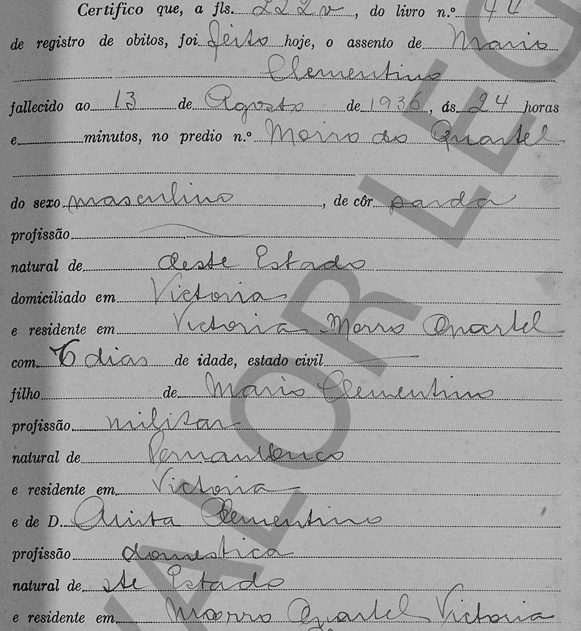 Certifico que, a fls. 222v, do livro n.º 44
de registro de obitos, foi feito hoje, o assento de Mario
Clementino
fallecido ao 13 de Agosto de 1936, ás 24 horas
e minutos, no predio n.º Morro do Quartel
do sexo masculino, de côr parda
profissão
natural de deste Estado
domiciliado em Victoria
e residente em Victoria Morro Quartel
com 6 dias de idade, estado civil
filho de Mario Clementino
profissão militar
natural de Pernambuco
e residente em Victoria
e de D. Clementino
profissão domestica
natural de ste Estado
e residente em Morro Quartel Victoria
VALOR LEG